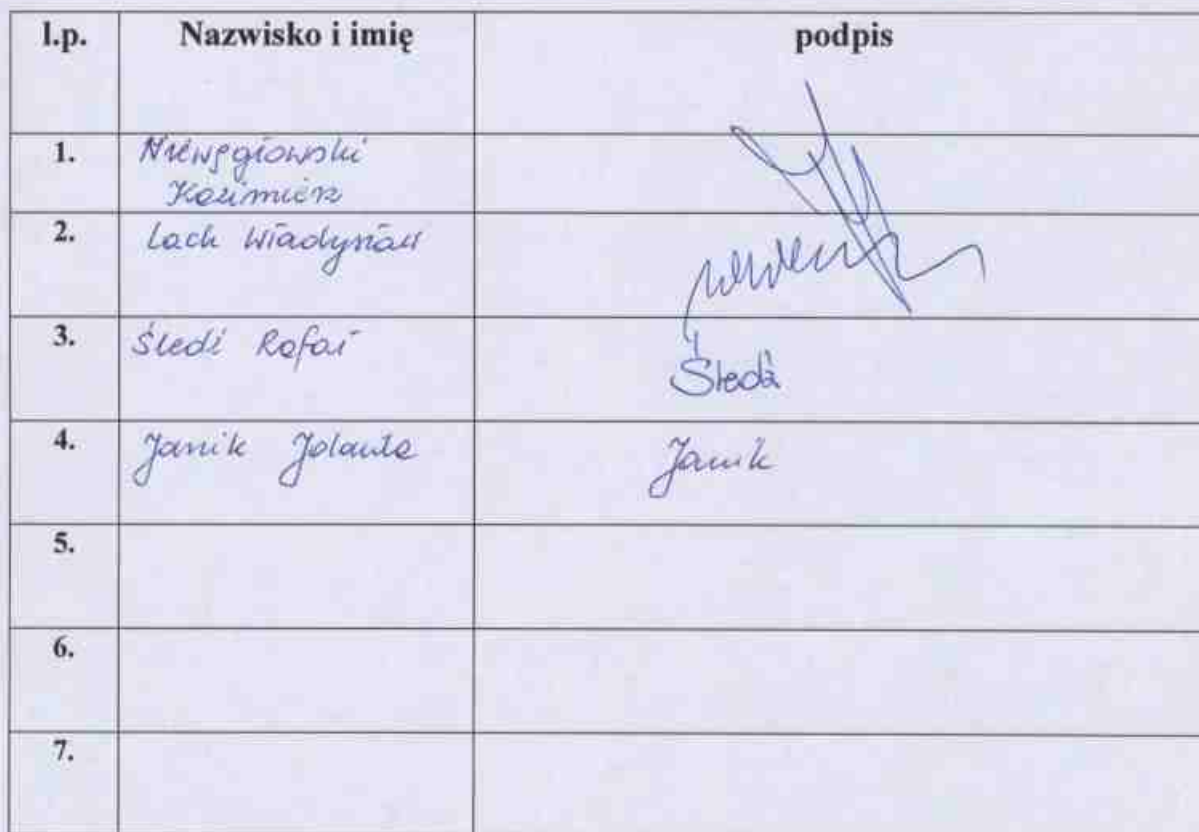 l.p. Nazwisko i imię podpis
1. Niewęgłowski
Kazimierz
2. Lach Władysław
3. Śledź Rafał Śledź
4. Janik Jolanta Janik
5.
6.
7.